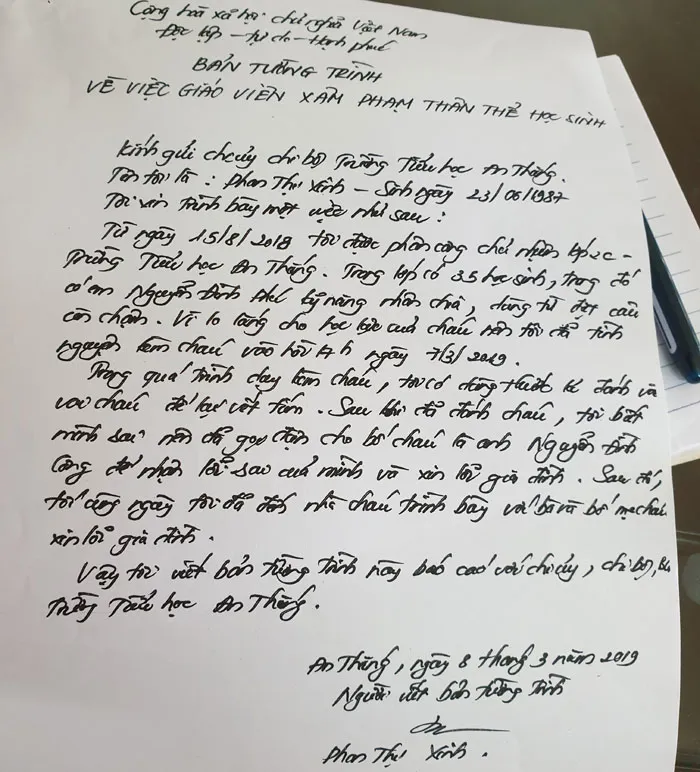 Cộng hoà xã hội chủ nghĩa Việt Nam
Độc lập - tự do - Hạnh phúc
BẢN TƯỜNG TRÌNH
VỀ VIỆC GIÁO VIÊN XÂM PHẠM THÂN THỂ HỌC SINH
Kính gửi chi ủy chi bộ Trường Tiểu học An Thắng.
Tên tôi là : Phan Thị Xinh - Sinh ngày 23/06/1987
Tôi xin trình bày một việc như sau :
Từ ngày 15/8/2018 tôi được phân công chủ nhiệm lớp 2C -
Trường Tiểu học An Thắng. Trong lớp có 35 học sinh, trong đó
có em Nguyễn Đình Phú kỹ năng nhân chia, dùng từ đặt câu
còn chậm. Vì lo lắng cho học lực của cháu nên tôi đã tình
nguyện kèm cháu vào hồi 17h ngày 7/3/2019.
Trong quá trình dạy kèm cháu, tôi có dùng thước kẻ đánh và
cháu để lại vết tím. Sau khi đã đánh cháu, tôi biết
mình sai nên đã gọi điện cho bố cháu là anh Nguyễn Đình
Công để nhận lỗi sai của mình và xin lỗi gia đình. Sau đó,
tối cùng ngày tôi đã đến nhà cháu trình bày với bà và bố mẹ cháu
xin lỗi gia đình.
Vậy tôi viết bản tường trình này báo cáo với chi ủy, chi bộ,
Trường Tiểu học An Thắng.
An Thắng, ngày 8 tháng 3 năm 2019
Người viết bản tường trình
Phan Thị Xinh.